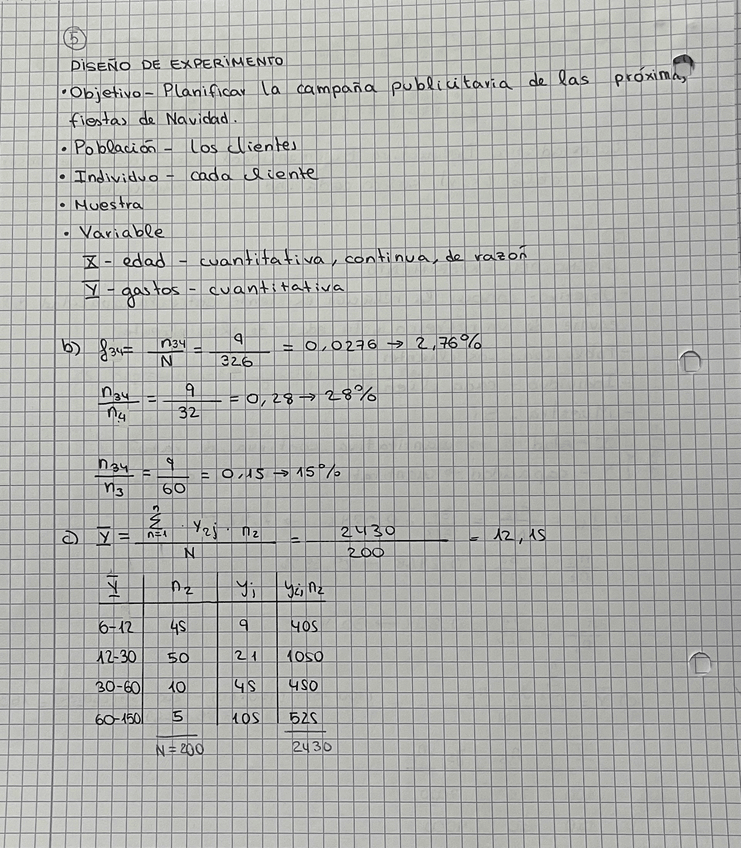 5
DISEÑO DE EXPERIMENTO
• Objetivo - Planificar la campaña publicitaria de las próximas
fiestas de Navidad.
• Población - los clientes
• Individuo - cada cliente
• Muestra
• Variable
X - edad - cuantitativa, continua, de razón
Y - gastos - cuantitativa
b) f34 = n34/N = 9/326 = 0,0276 → 2,76%
n34/n4 = 9/32 = 0,28 → 28%
n34/n3 = 9/60 = 0,15 → 15%
c) Y̅ = Σ n n=1 · y2j · n2 / N = 2430/200 = 12,15
Y n2 yj yi, n2
6-12 45 9 405
12-30 50 21 1050
30-60 10 45 450
60-150 5 105 525
N=200 2430